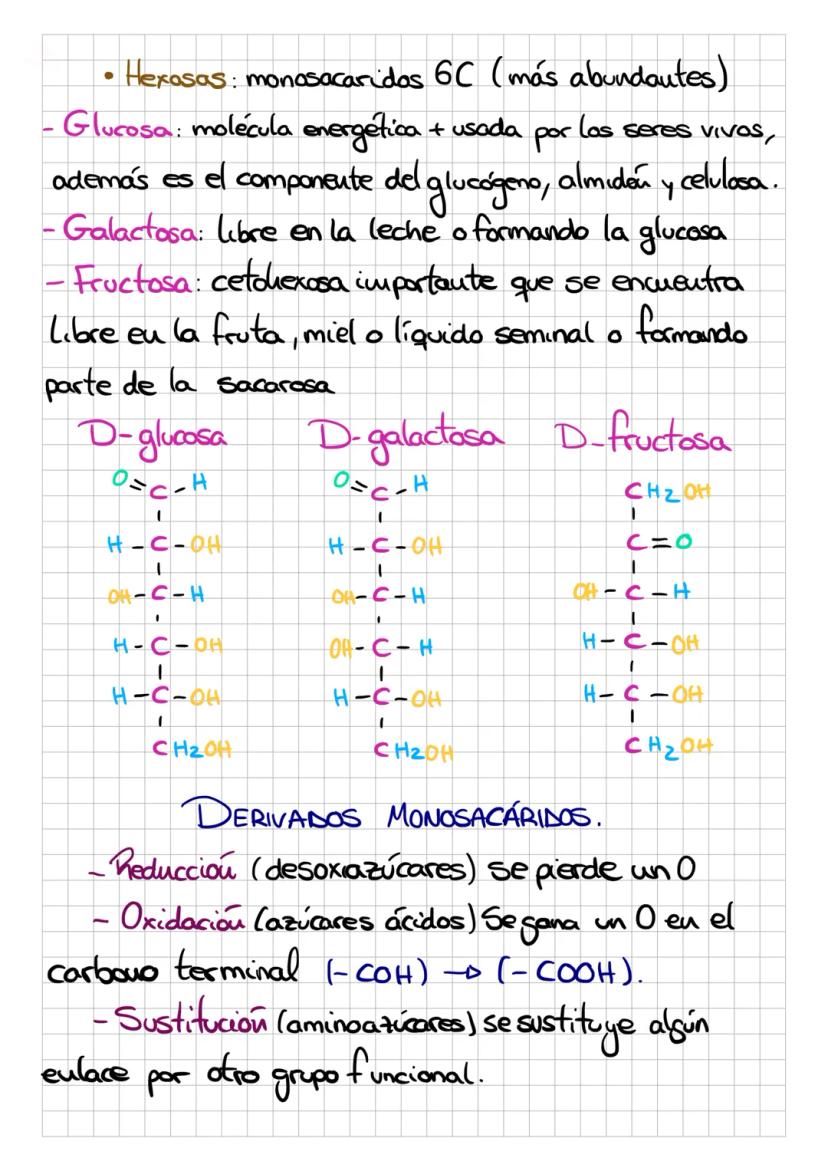 • Hexosas: monosacaridos 6C (más abundantes)
- Glucosa: molécula energética + usada por los seres vivos,
además es el componente del glucógeno, almidón y celulosa.
- Galactosa: libre en la leche o formando la glucosa
- Fructosa: cetohexosa importante que se encuentra
libre en la fruta, miel o líquido seminal o formando
parte de la sacarosa
D-glucosa D-galactosa D-fructosa
O=C-H O=C-H CH2OH
H-C-OH H-C-OH C=O
OH-C-H OH-C-H OH-C-H
H-C-OH OH-C-H H-C-OH
H-C-OH H-C-OH H-C-OH
CH2OH CH2OH CH2OH
DERIVADOS MONOSACÁRIDOS.
- Reducción (desoxiazúcares) se pierde un O
- Oxidación (azúcares ácidos) Se gana un O en el
carbono terminal (-COH) → (-COOH).
- Sustitución (aminoazúcares) se sustituye algún
enlace por otro grupo funcional.